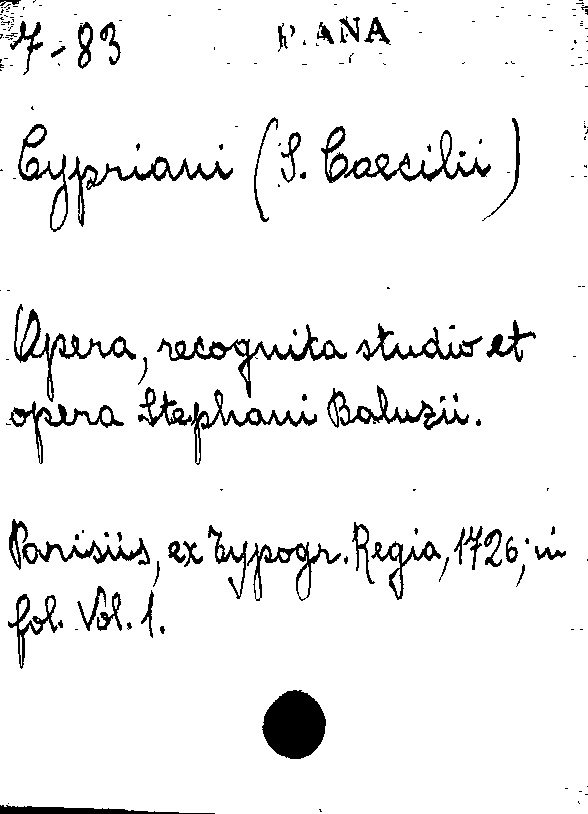 7-83
Cypriani (S. Caecilii)
Opera, recognita studio et
opera Stephani Baluzii.
Parisiis, ex Typogr. Regia, 1726; in
fol. Vol. 1.